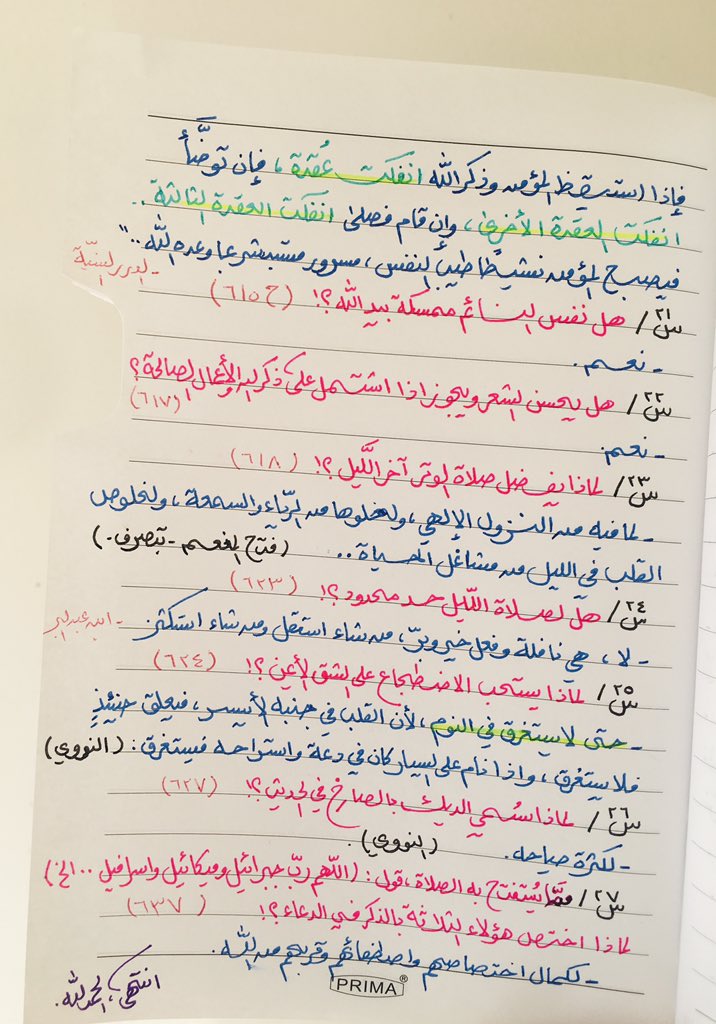 فإذا استيقظ المؤمن وذكر الله انفكت عُقدة، فإن توضَّأ
انفكت العقدة الأخرى، وإن قام فصلى انفكت العقدة الثالثة..
فيصبح المؤمن نشيطًا طيبَ النفس، مسرور مستبشر بما وعده الله.."
- الدرر السنيّة
س٢١/ هل نفس النائم ممسكة بيد الله؟! (ح ٦١٥)
- نعم.
س٢٢/ هل يحسن الشعر ويجوز اذا اشتمل على ذكر الله والأعمال الصالحة؟
(٦١٧)
- نعم.
س٢٣/ لماذا يفضل صلاة الوتر آخر الليل؟! (٦١٨)
- لما فيه من النزول الإلهي، ولخلوها من الرياء والسمعة، ولخلوص
القلب في الليل من مشاغل الحياة.. (فتح المنعم - بتصرف -)
س٢٤/ هل لصلاة الليل حد محدود؟! (٦٢٣)
- لا، هي نافلة وفعل خير وبرّ، من شاء استقل ومن شاء استكثر
- ابن عبدالبر
س٢٥/ لماذا يستحب الاضطجاع على الشق الأيمن؟! (٦٢٤)
- حتى لا يستغرق في النوم، لأن القلب في جنبه الأيسر، فيعلق حينئذٍ
فلا يستغرق، واذا نام على اليسار كان في دعة واستراحه فيستغرق: (النووي)
س٢٦/ لماذا سُمي الديك بالصارخ في الحديث؟! (٦٢٧)
- لكثرة صياحه. (النووي).
س٢٧/ ممَّا يُستفتح به الصلاة، قول: (اللهم ربّ جبرائيل وميكائيل واسرافيل ..الخ)
لماذا اختص هؤلاء الثلاثة بالذكر في الدعاء؟! (٦٣٧)
- لكمال اختصاصهم واصطفائهم وقربهم من الله.
انتهى، الحمدلله.
PRIMA®